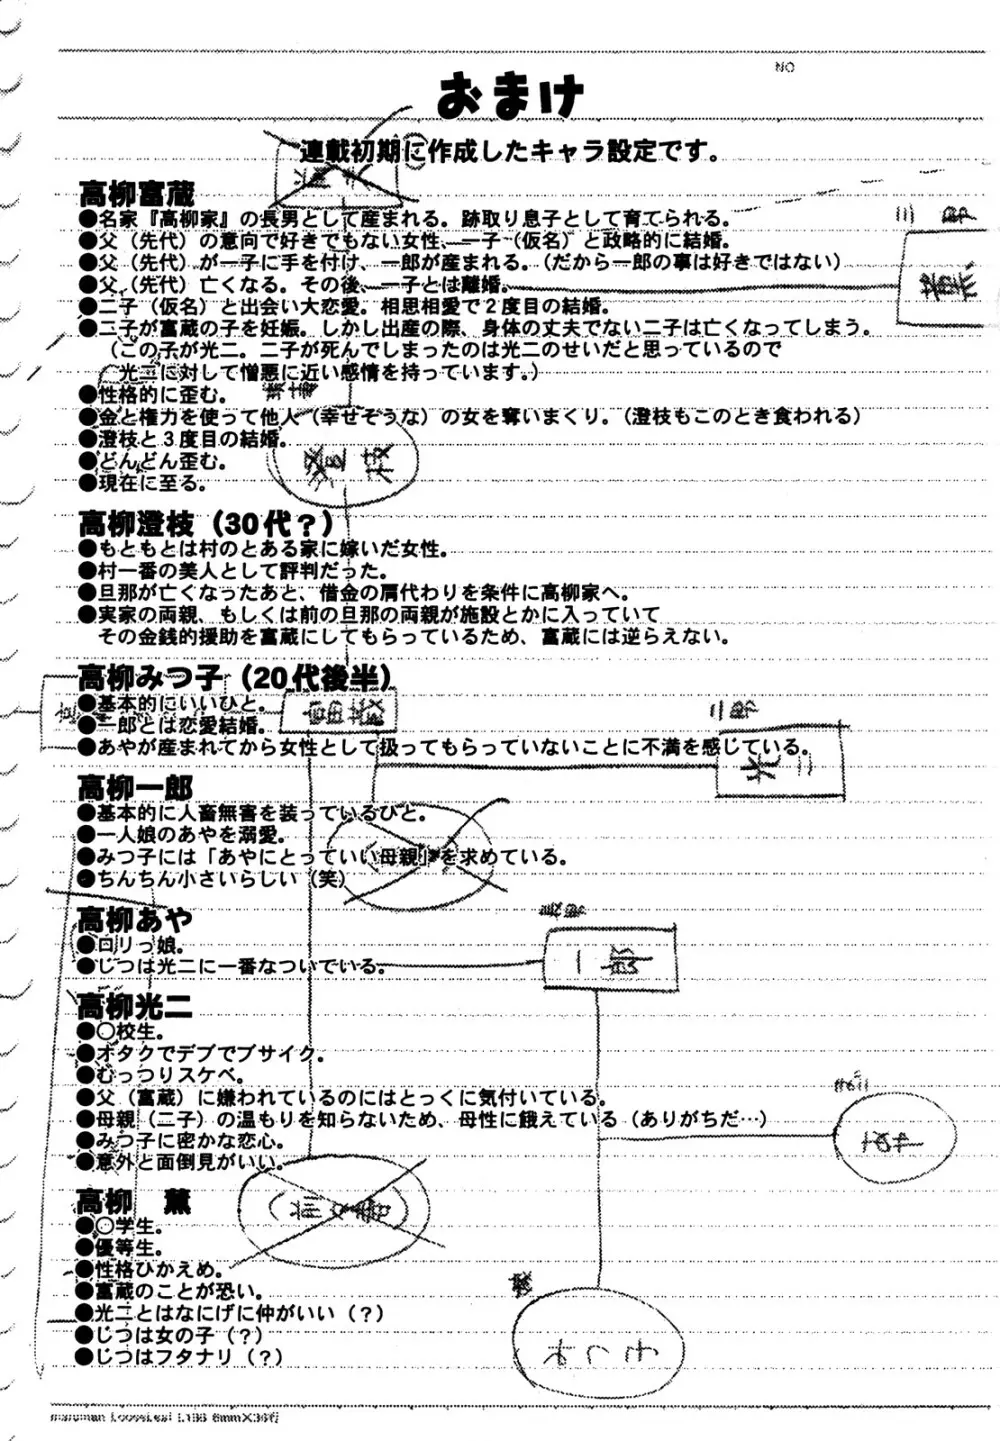 NO
おまけ
連載初期に作成したキャラ設定です。
高柳富蔵
●名家『高柳家』の長男として産まれる。跡取り息子として育てられる。
●父（先代）の意向で好きでもない女性、一子（仮名）と政略的に結婚。
●父（先代）が一子に手を付け、一郎が産まれる。（だから一郎の事は好きではない）
●父（先代）亡くなる。その後、一子とは離婚。
●二子（仮名）と出会い大恋愛。相思相愛で２度目の結婚。
●二子が富蔵の子を妊娠。しかし出産の際、身体の丈夫でない二子は亡くなってしまう。
（この子が光二。二子が死んでしまったのは光二のせいだと思っているので
光二に対して憎悪に近い感情を持っています。）
●性格的に歪む。
●金と権力を使って他人（幸せそうな）の女を奪いまくり。（澄枝もこのとき食われる）
●澄枝と３度目の結婚。
●どんどん歪む。
●現在に至る。
澄枝
高柳澄枝（30代？）
●もともとは村のとある家に嫁いだ女性。
●村一番の美人として評判だった。
●旦那が亡くなったあと、借金の肩代わりを条件に高柳家へ。
●実家の両親、もしくは前の旦那の両親が施設とかに入っていて
その金銭的援助を富蔵にしてもらっているため、富蔵には逆らえない。
高柳みつ子（20代後半）
●基本的にいいひと。
●一郎とは恋愛結婚。
●あやが産まれてから女性として扱ってもらっていないことに不満を感じている。
富蔵
二郎
光二
高柳一郎
●基本的に人畜無害を装っているひと。
●一人娘のあやを溺愛。
●みつ子には「あやにとっていい母親」を求めている。
●ちんちん小さいらしい（笑）
高柳あや
●ロリっ娘。
●じつは光二に一番なついでいる。
一郎
高柳光二
●〇校生。
●オタクでデブでブサイク。
●むっつりスケベ。
●父（富蔵）に嫌われているのにはとっくに気付いている。
●母親（二子）の温もりを知らないため、母性に餓えている（ありがちだ…）
●みつ子に密かな恋心。
●意外と面倒見がいい。
高柳　薫
●〇学生。
●優等生。
●性格ひかえめ。
●富蔵のことが恐い。
●光二とはなにげに仲がいい（？）
●じつは女の子（？）
●じつはフタナリ（？）